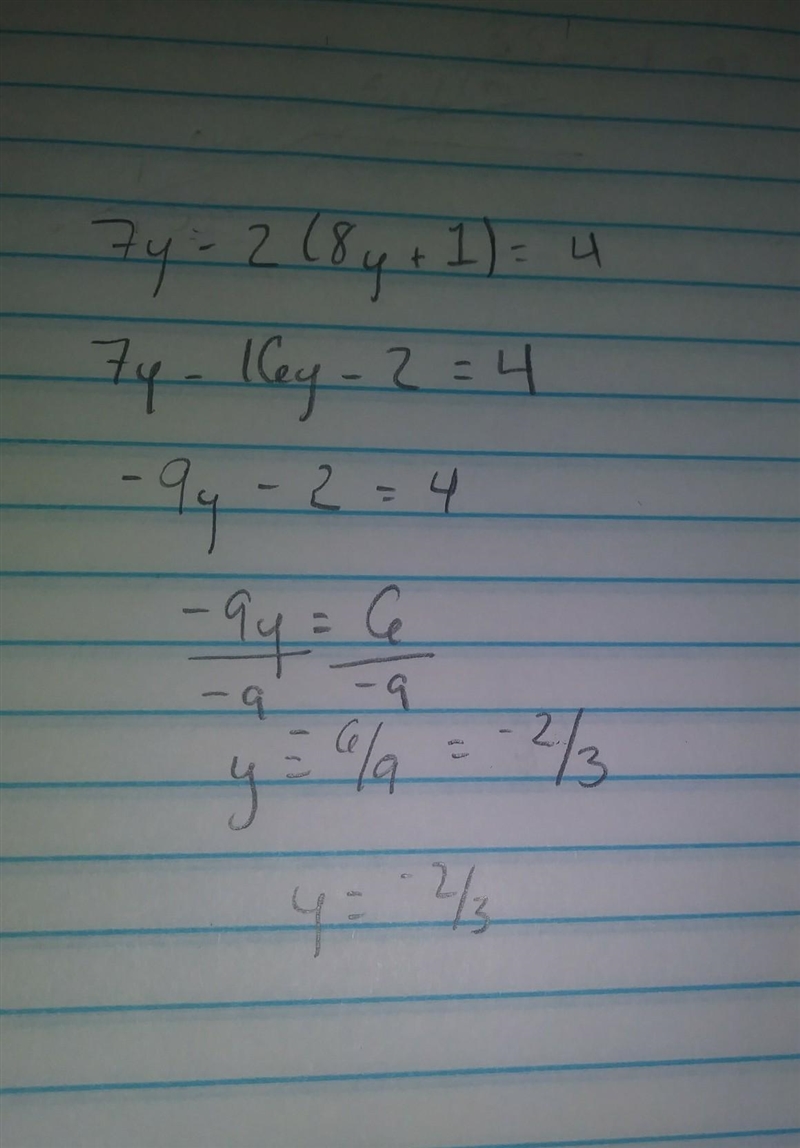 7y - 2 (8y + 1) = 4
7y - 16y - 2 = 4
-9y - 2 = 4
-9y = 6
-9 -9
y = -6/9 = -2/3
y = -2/3